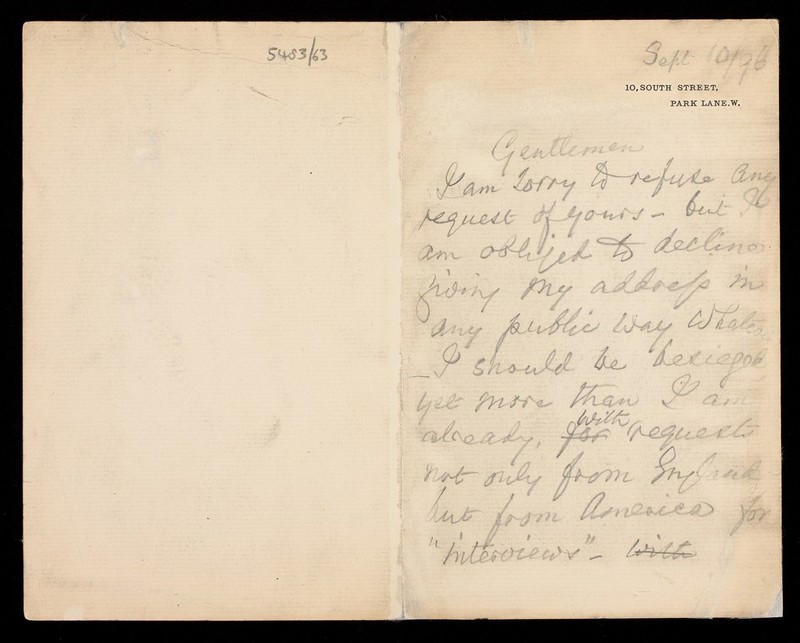 5483/63
Sept 10/96
10, SOUTH STREET,
PARK LANE. W.
Gentlemen
I am sorry to refuse any
request of yours - but I
am obliged to decline
giving my address in
any public way
- I should be besieged
yet more than I am
already, for with requests
not only from England
but from America for
"interviews" - with